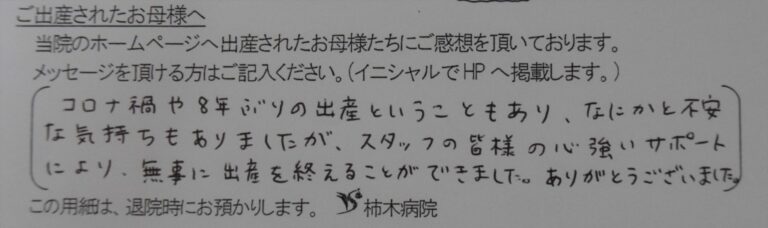 ご出産されたお母様へ
当院のホームページへ出産されたお母様たちにご感想を頂いております。
メッセージを頂ける方はご記入ください。(イニシャルでHPへ掲載します。)
コロナ禍や8年ぶりの出産ということもあり、なにかと不安
な気持ちもありましたが、スタッフの皆様の心強いサポート
により、無事に出産を終えることができました。ありがとうございました。
この用紙は、退院時にお預かりします。 柿木病院